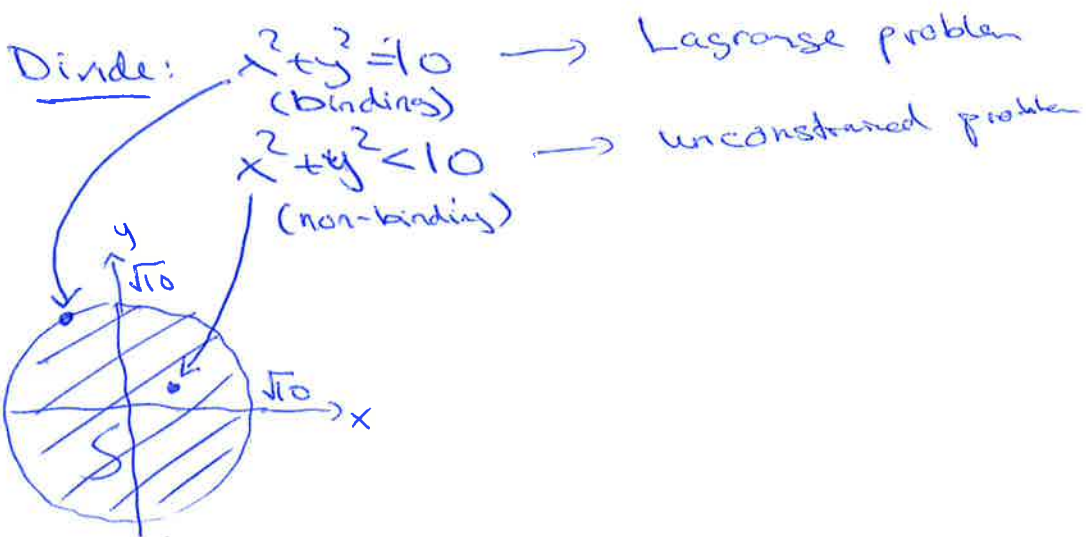 Divide: x²+y²=10 → Lagrange problem
(binding)
x²+y²<10 → unconstrained problem
(non-binding)
y
√10
√10
x
S